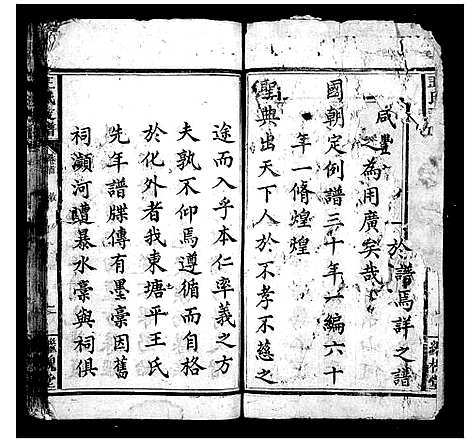 咸豐
於譜焉詳之譜
之為用廣矣哉
國朝定例譜三十年一編六十
年一脩煌煌
聖典出天下人於不孝不慈之
途而入乎本仁率義之方
夫孰不仰焉遵循而自格
於化外者我東塘平王氏
先年譜牒傳有墨稾因舊
祠瀕河遭暴水稾與祠俱